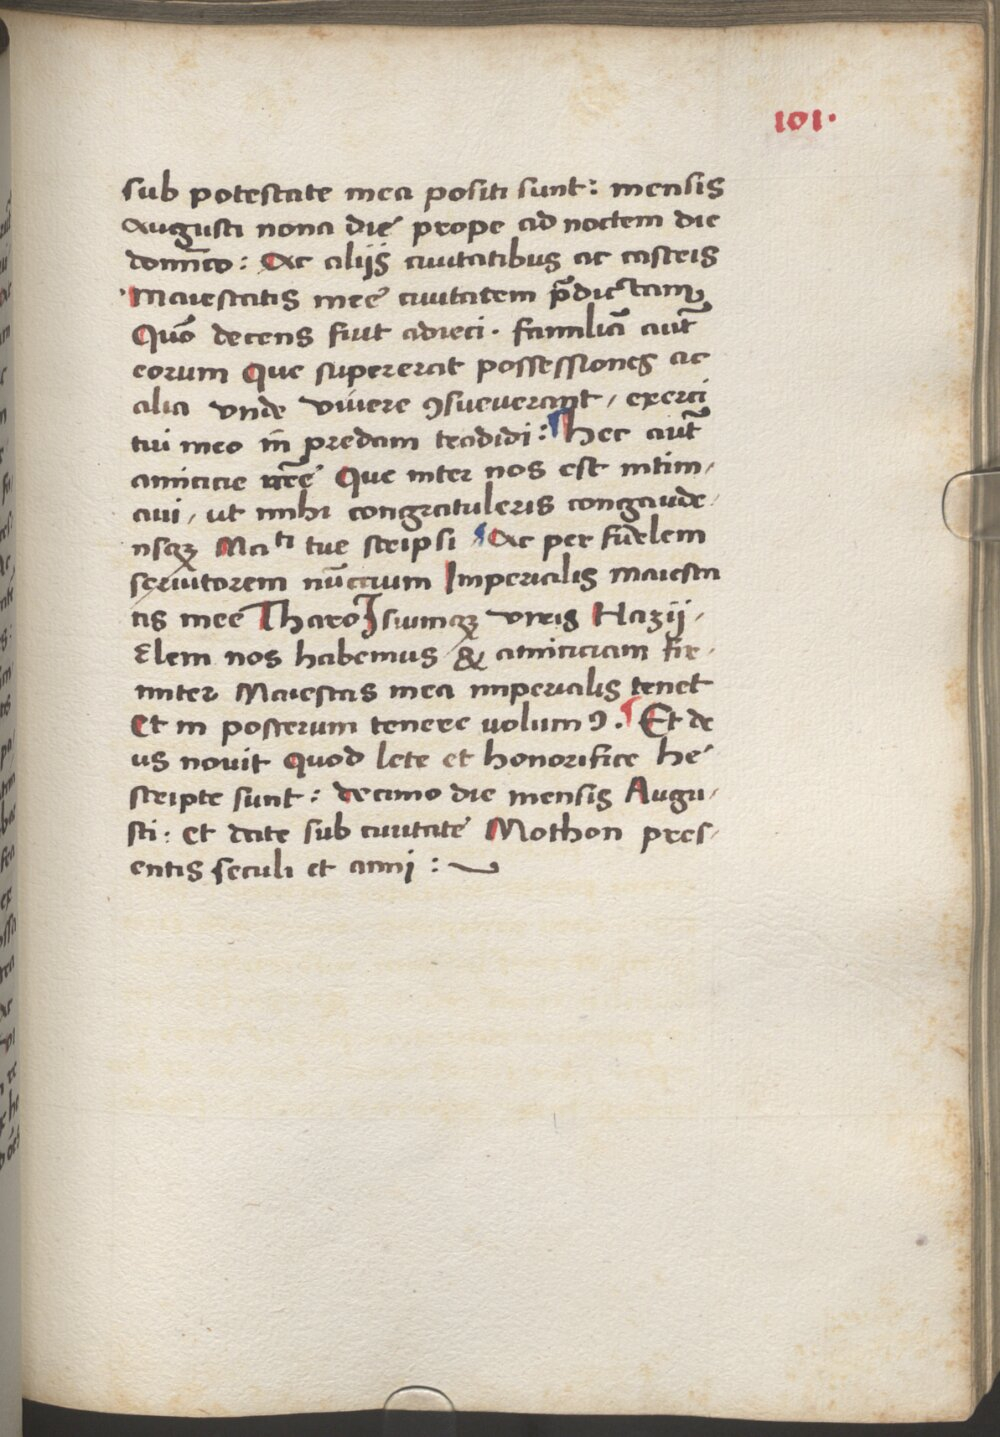 101.
sub potestate mea positi sunt: mensis
Augusti nona die prope ad noctem die
domīco: Ac alijs ciuitatibus ac castris
Maiestatis mee ciuitatem p̄dictam
Quō decens fuit adieci. familiā aut̄
eorum Que supererat possessiones ac
alia vnde viuere ꝯsueuerant, exerci
tui meo in predam tradidi: Hec aut̄
amicicie nr̄ē Que inter nos est intim,
aui, ut mihi congratuleris congaude,
asqꝫ Maᵗⁱ tue scripsi Ac per fidelem
seruitorem nūccium Imperialis maiesta
tis mee
Elem nos habemus & amiciciam fir,
miter Maiestas mea imperialis tenet
Et in posterum tenere uolumꝯ. Et de
us nouit quod lete et honorifice he
scripte sunt: decimo die mensis Augu,
sti: et date sub ciuitate Mothon pres,
entis seculi et anni: